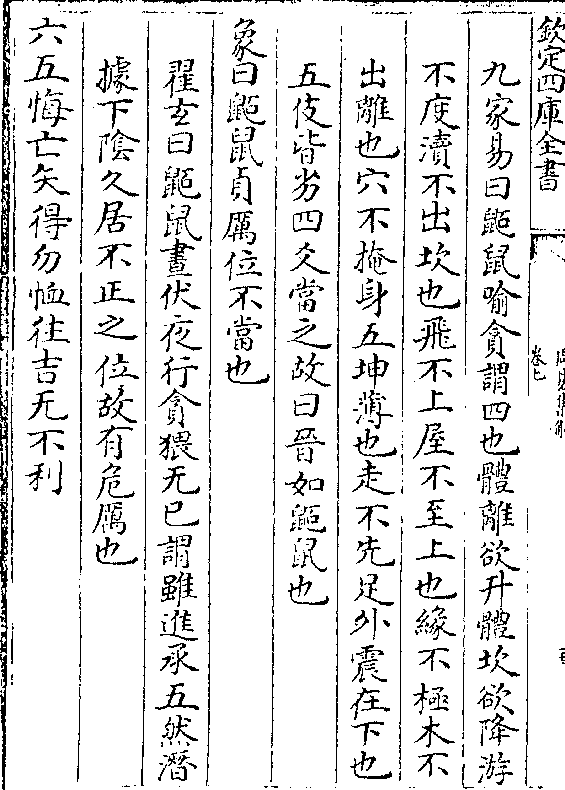 欽定四庫全書
卷七
九家易曰鼫鼠喻貪謂四也體離欲升體坎欲降游
不度瀆不出坎也飛不上屋不至上也緣不極木不
出離也穴不掩身五坤薄也走不先足外震在下也
五伎皆劣四爻當之故曰晉如鼫鼠也
象曰鼫鼠貞厲位不當也
翟玄曰鼫鼠晝伏夜行貪猥无已謂雖進承五然潛
據下陰久居不正之位故有危厲也
六五悔亡矢得勿恤往吉无不利